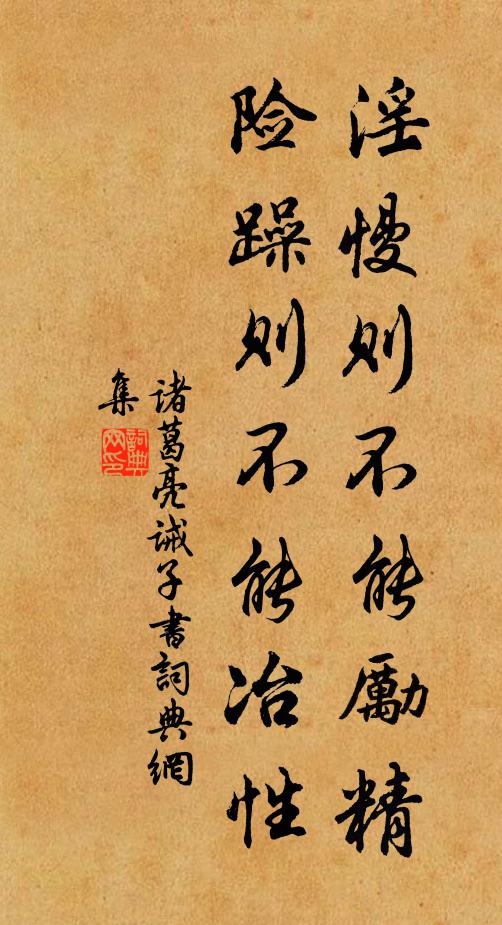 淫慢则不能勵精
险躁则不能冶性
诸葛亮诫子書詞典網
集
詞典
网印